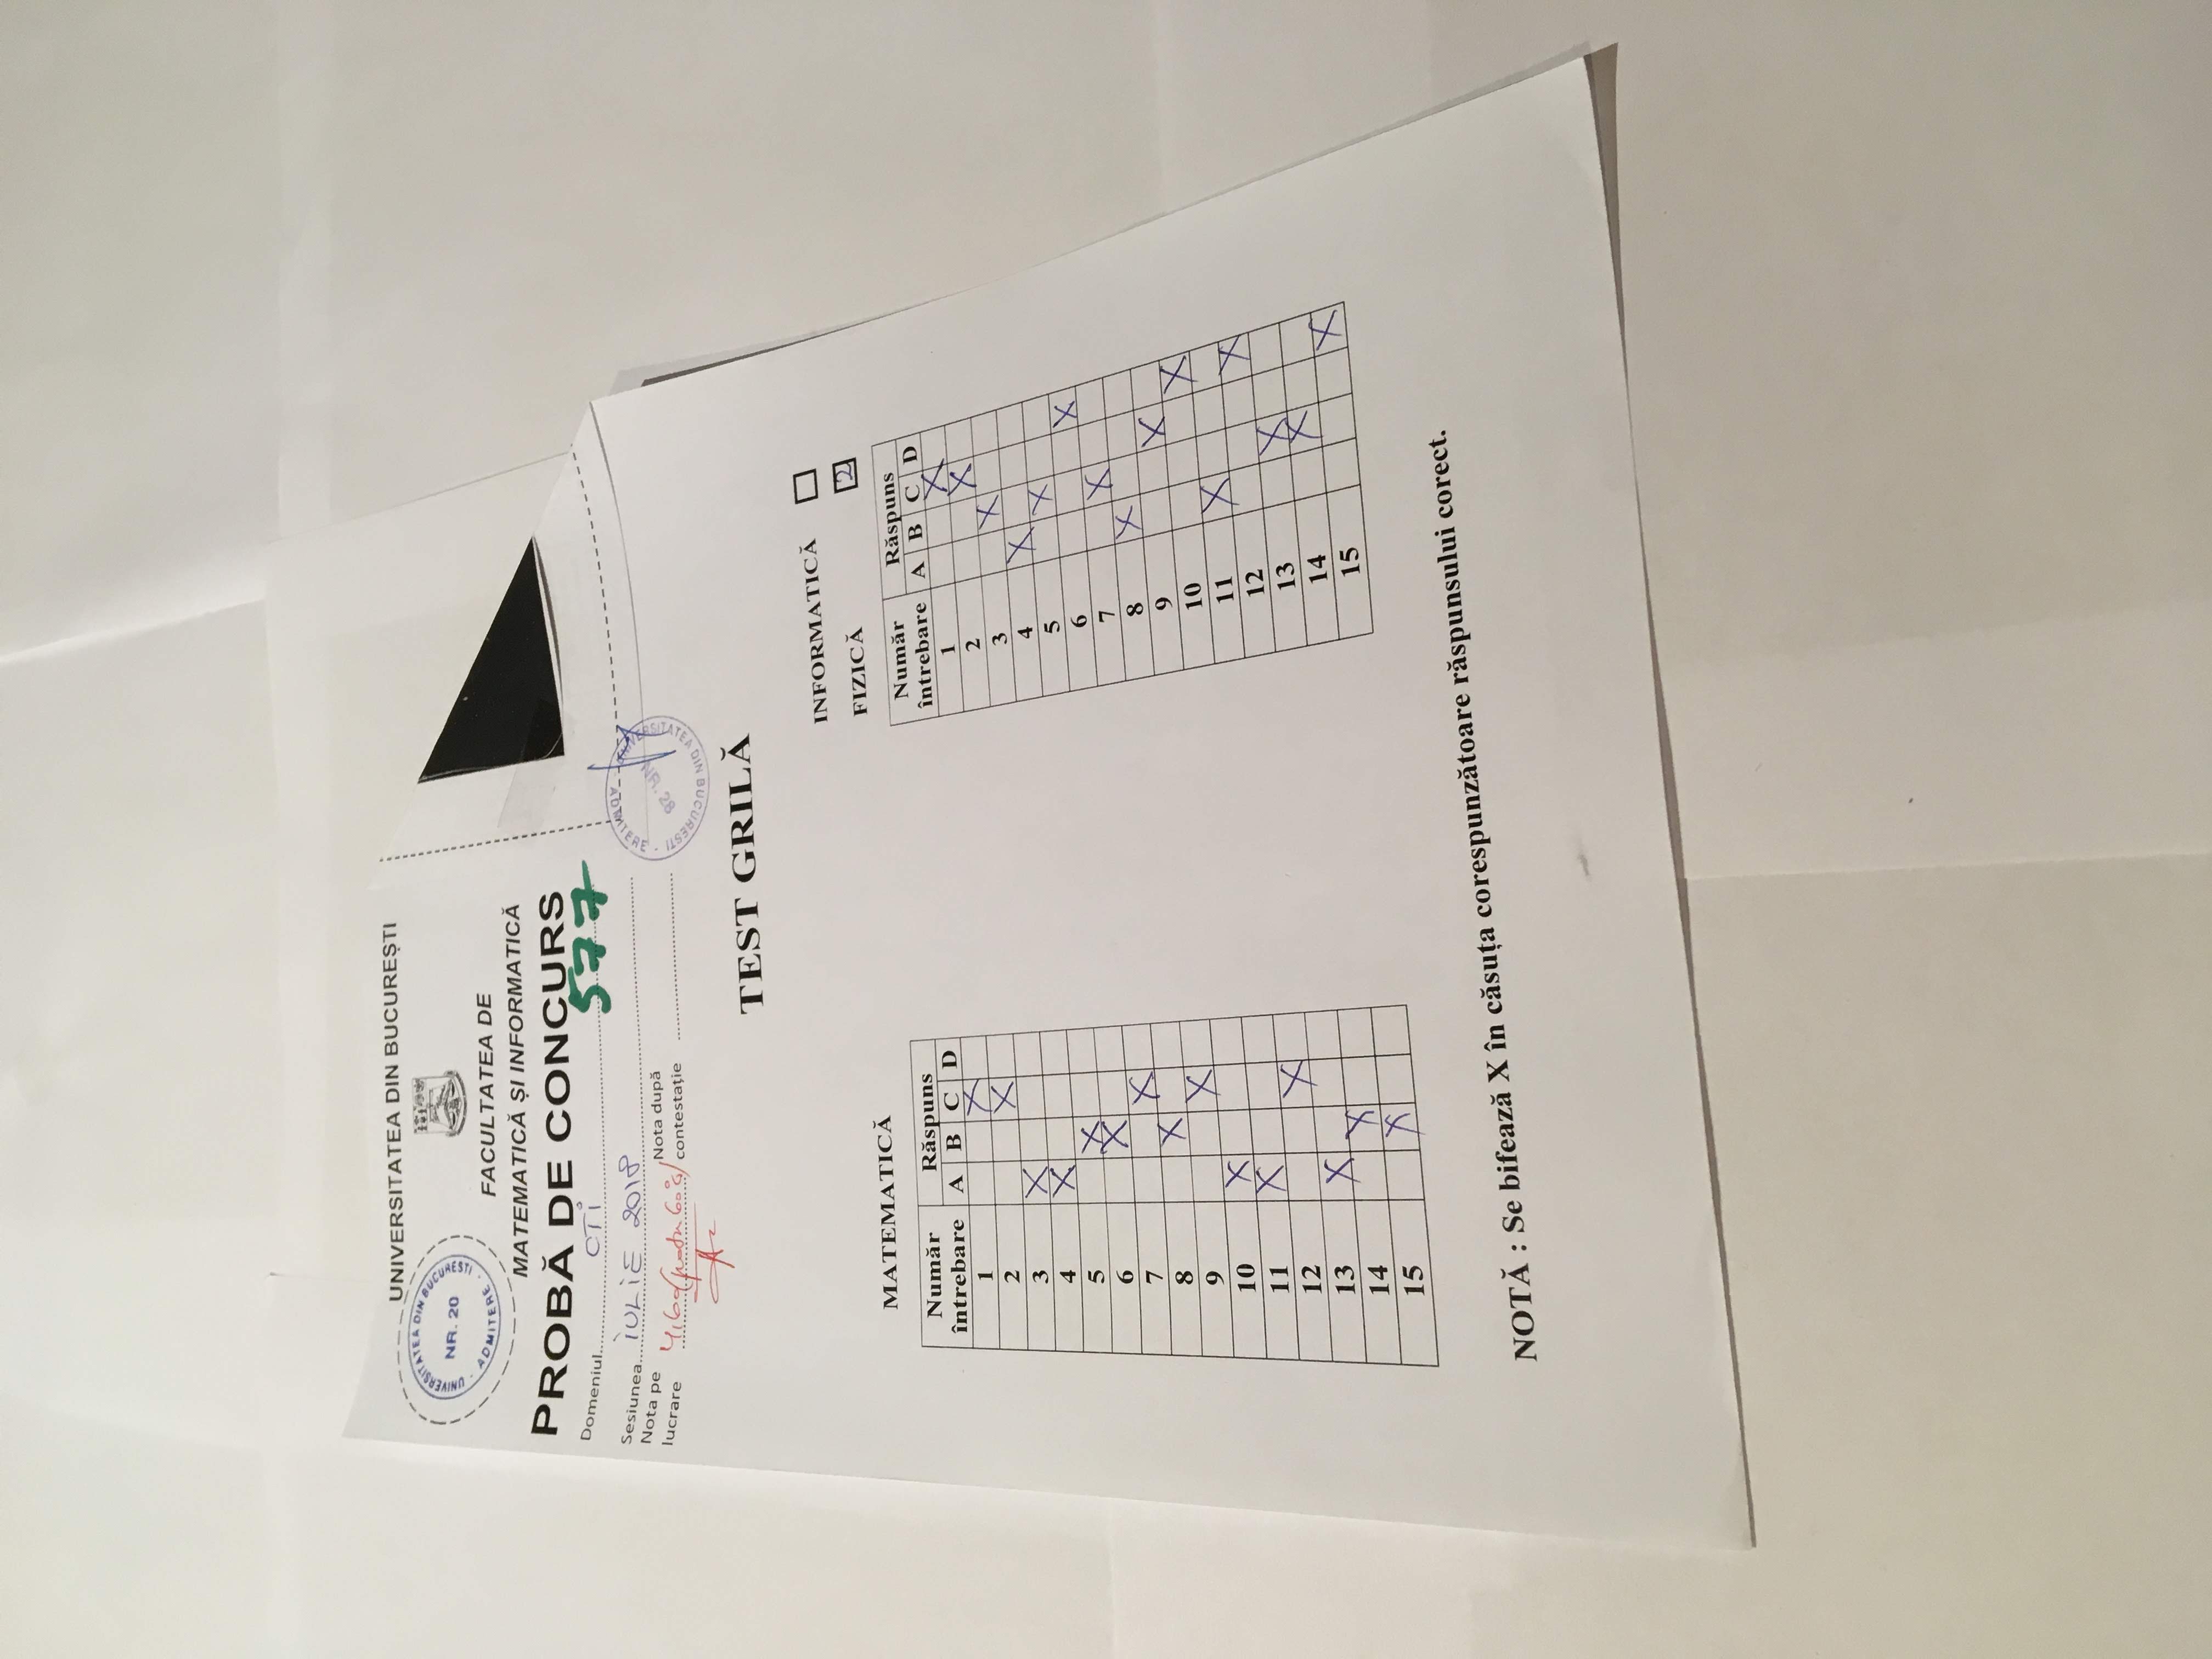 UNIVERSITATEA DIN BUCUREȘTI
UNIVERSITATEA DIN BUCUREȘTI
NR. 20
ADMITERE
FACULTATEA DE
MATEMATICĂ ȘI INFORMATICĂ
PROBĂ DE CONCURS
Domeniul CTI 577
Sesiunea IULIE 2018
Nota pe lucrare 4,60
Nota după contestație
UNIVERSITATEA DIN BUCUREȘTI
NR. 28
ADMITERE
TEST GRILĂ
INFORMATICĂ
FIZICĂ 2
MATEMATICĂ
Număr întrebare Răspuns
A B C D
1 X
2 X
3 X
4 X
5 X
6 X
7 X
8 X
9 X
10 X
11 X
12 X
13 X
14 X
15 X
Număr întrebare Răspuns
A B C D
1 X
2 X
3 X
4 X
5 X
6 X
7 X
8 X
9 X
10 X
11 X
12 X
13 X
14 X
15 X
NOTĂ : Se bifează X în căsuța corespunzătoare răspunsului corect.